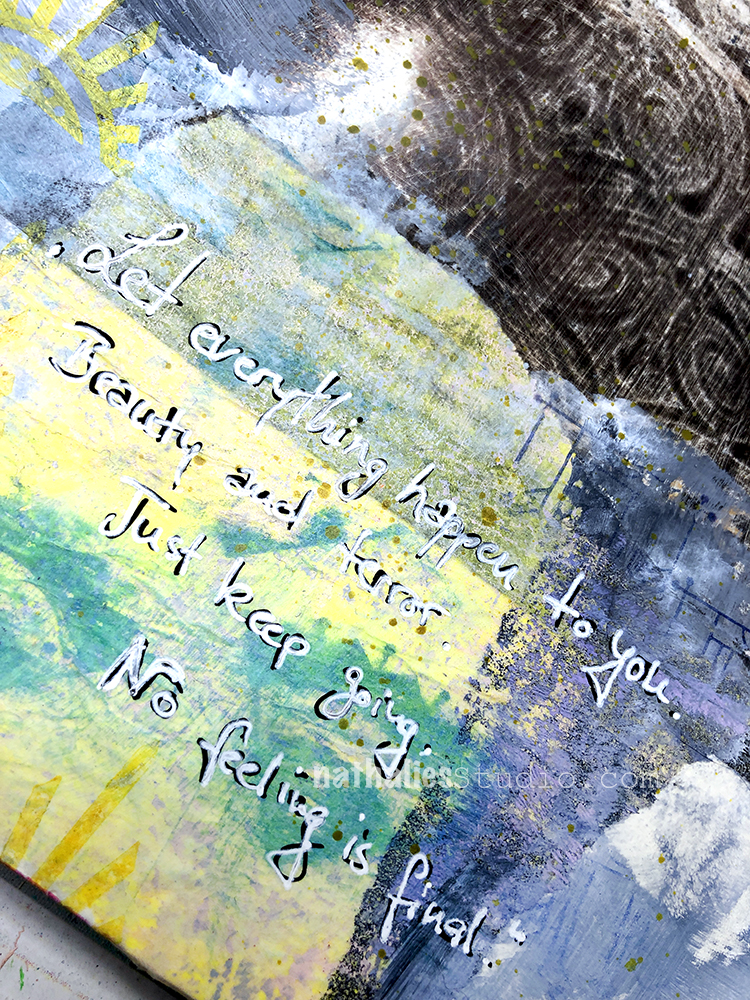 , Let everything happen to you.
Beauty and terror.
Just keep going.
No feeling is final."
nathaliesstudio.com